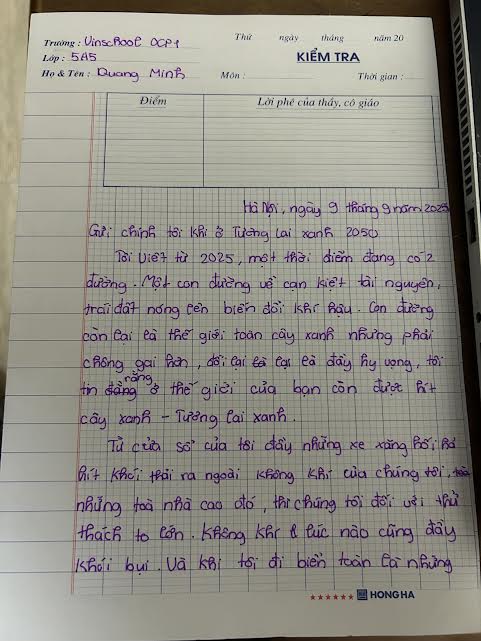 Trường : Vinschool OCP1
Thứ ngày tháng năm 20
Lớp : 5A5
KIỂM TRA
Họ & Tên : Quang Minh
Môn : Thời gian :
Điểm Lời phê của thầy, cô giáo
Hà Nội, ngày 9 tháng 9 năm 2025
Gửi chính tôi khi ở Tương lai xanh 2050
Tôi viết từ 2025, một thời điểm đang có 2
đường. Một con đường về cạn kiệt tài nguyên,
trái đất nóng lên biến đổi khí hậu. Con đường
còn lại là thế giới toàn cây xanh nhưng phải
chông gai hơn, đổi lại là đầy hy vọng, tôi
tin rằng ở thế giới của bạn còn được hít
cây xanh - Tương lai xanh.
Từ cửa sổ của tôi đầy những xe xăng hối hả
hít khói thải ra ngoài không khí của chúng tôi,
những toà nhà cao đó, thì chúng tôi đối với thử
thách to lớn. Không khí lúc nào cũng đầy
khói bụi. Và khi tôi đi biển toàn là những
HONG HA